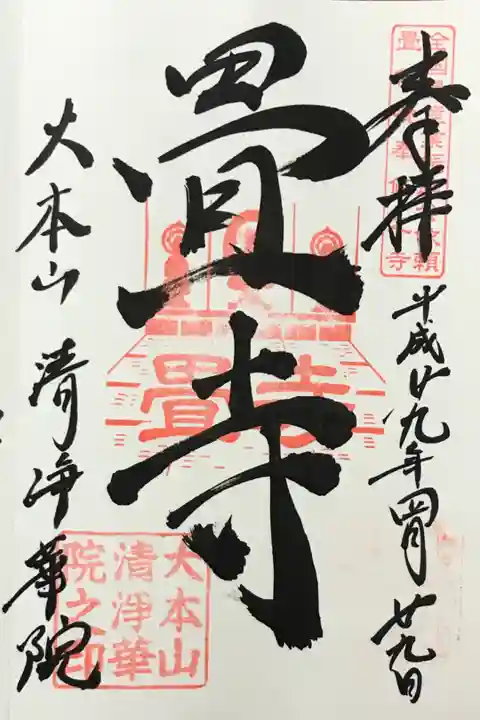 奉拝
平成廿九年四月廿九日
畳寺
大本山 清浄華院
畳寺
大本山
清淨華
院之印